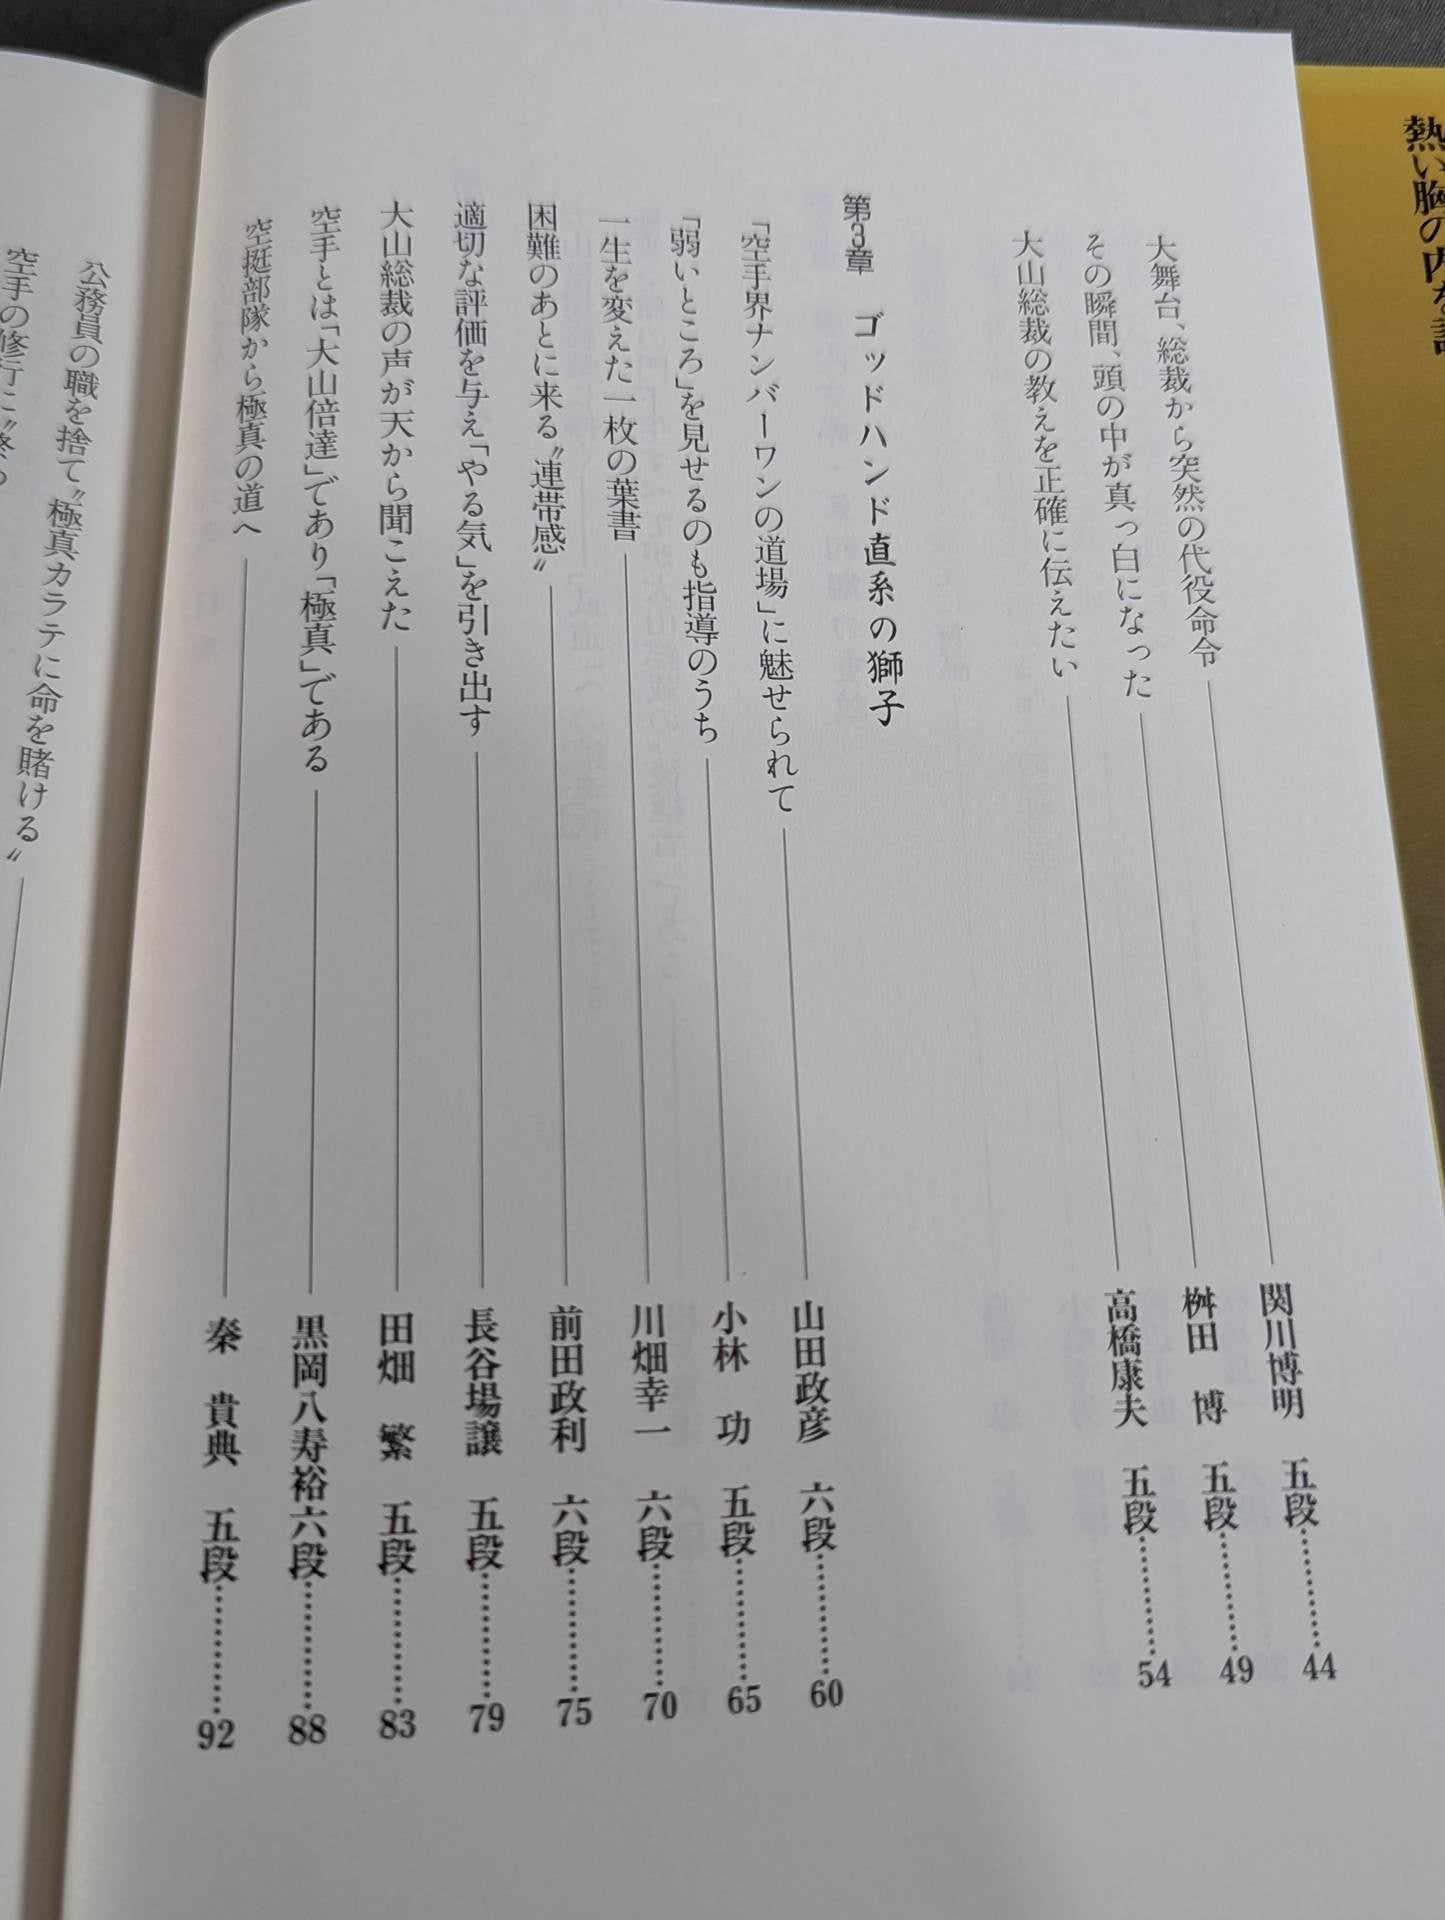 熱い胸の内を
大舞台、総裁から突然の代役命令 関川博明 五段………44
その瞬間、頭の中が真っ白になった 桝田 博 五段………49
大山総裁の教えを正確に伝えたい 高橋康夫 五段………54
第3章 ゴッドハンド直系の獅子
「空手界ナンバーワンの道場」に魅せられて 山田政彦 六段………60
「弱いところ」を見せるのも指導のうち 小林 功 五段………65
一生を変えた一枚の葉書 川畑幸一 六段………70
困難のあとに来る〝連帯感〟 前田政利 六段………75
適切な評価を与え「やる気」を引き出す 長谷場譲 五段………79
大山総裁の声が天から聞こえた 田畑 繁 五段………83
空手とは「大山倍達」であり「極真」である 黒岡八寿裕六段………88
空挺部隊から極真の道へ 秦 貴典 五段………92
公務員の職を捨て〝極真カラテに命を賭ける〟
空手の修行に〝終わ